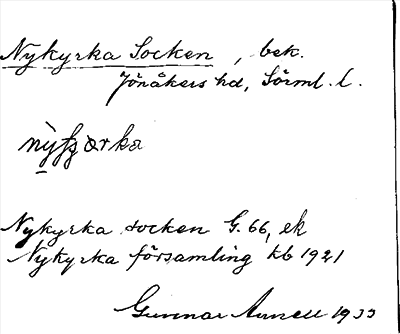 Nykyrka Socken, bek.
Jönåkers hd, Sörml. l.
Nykyrka socken G. 66, ek
Nykyrka församling kb 1921
Gunnar 1933